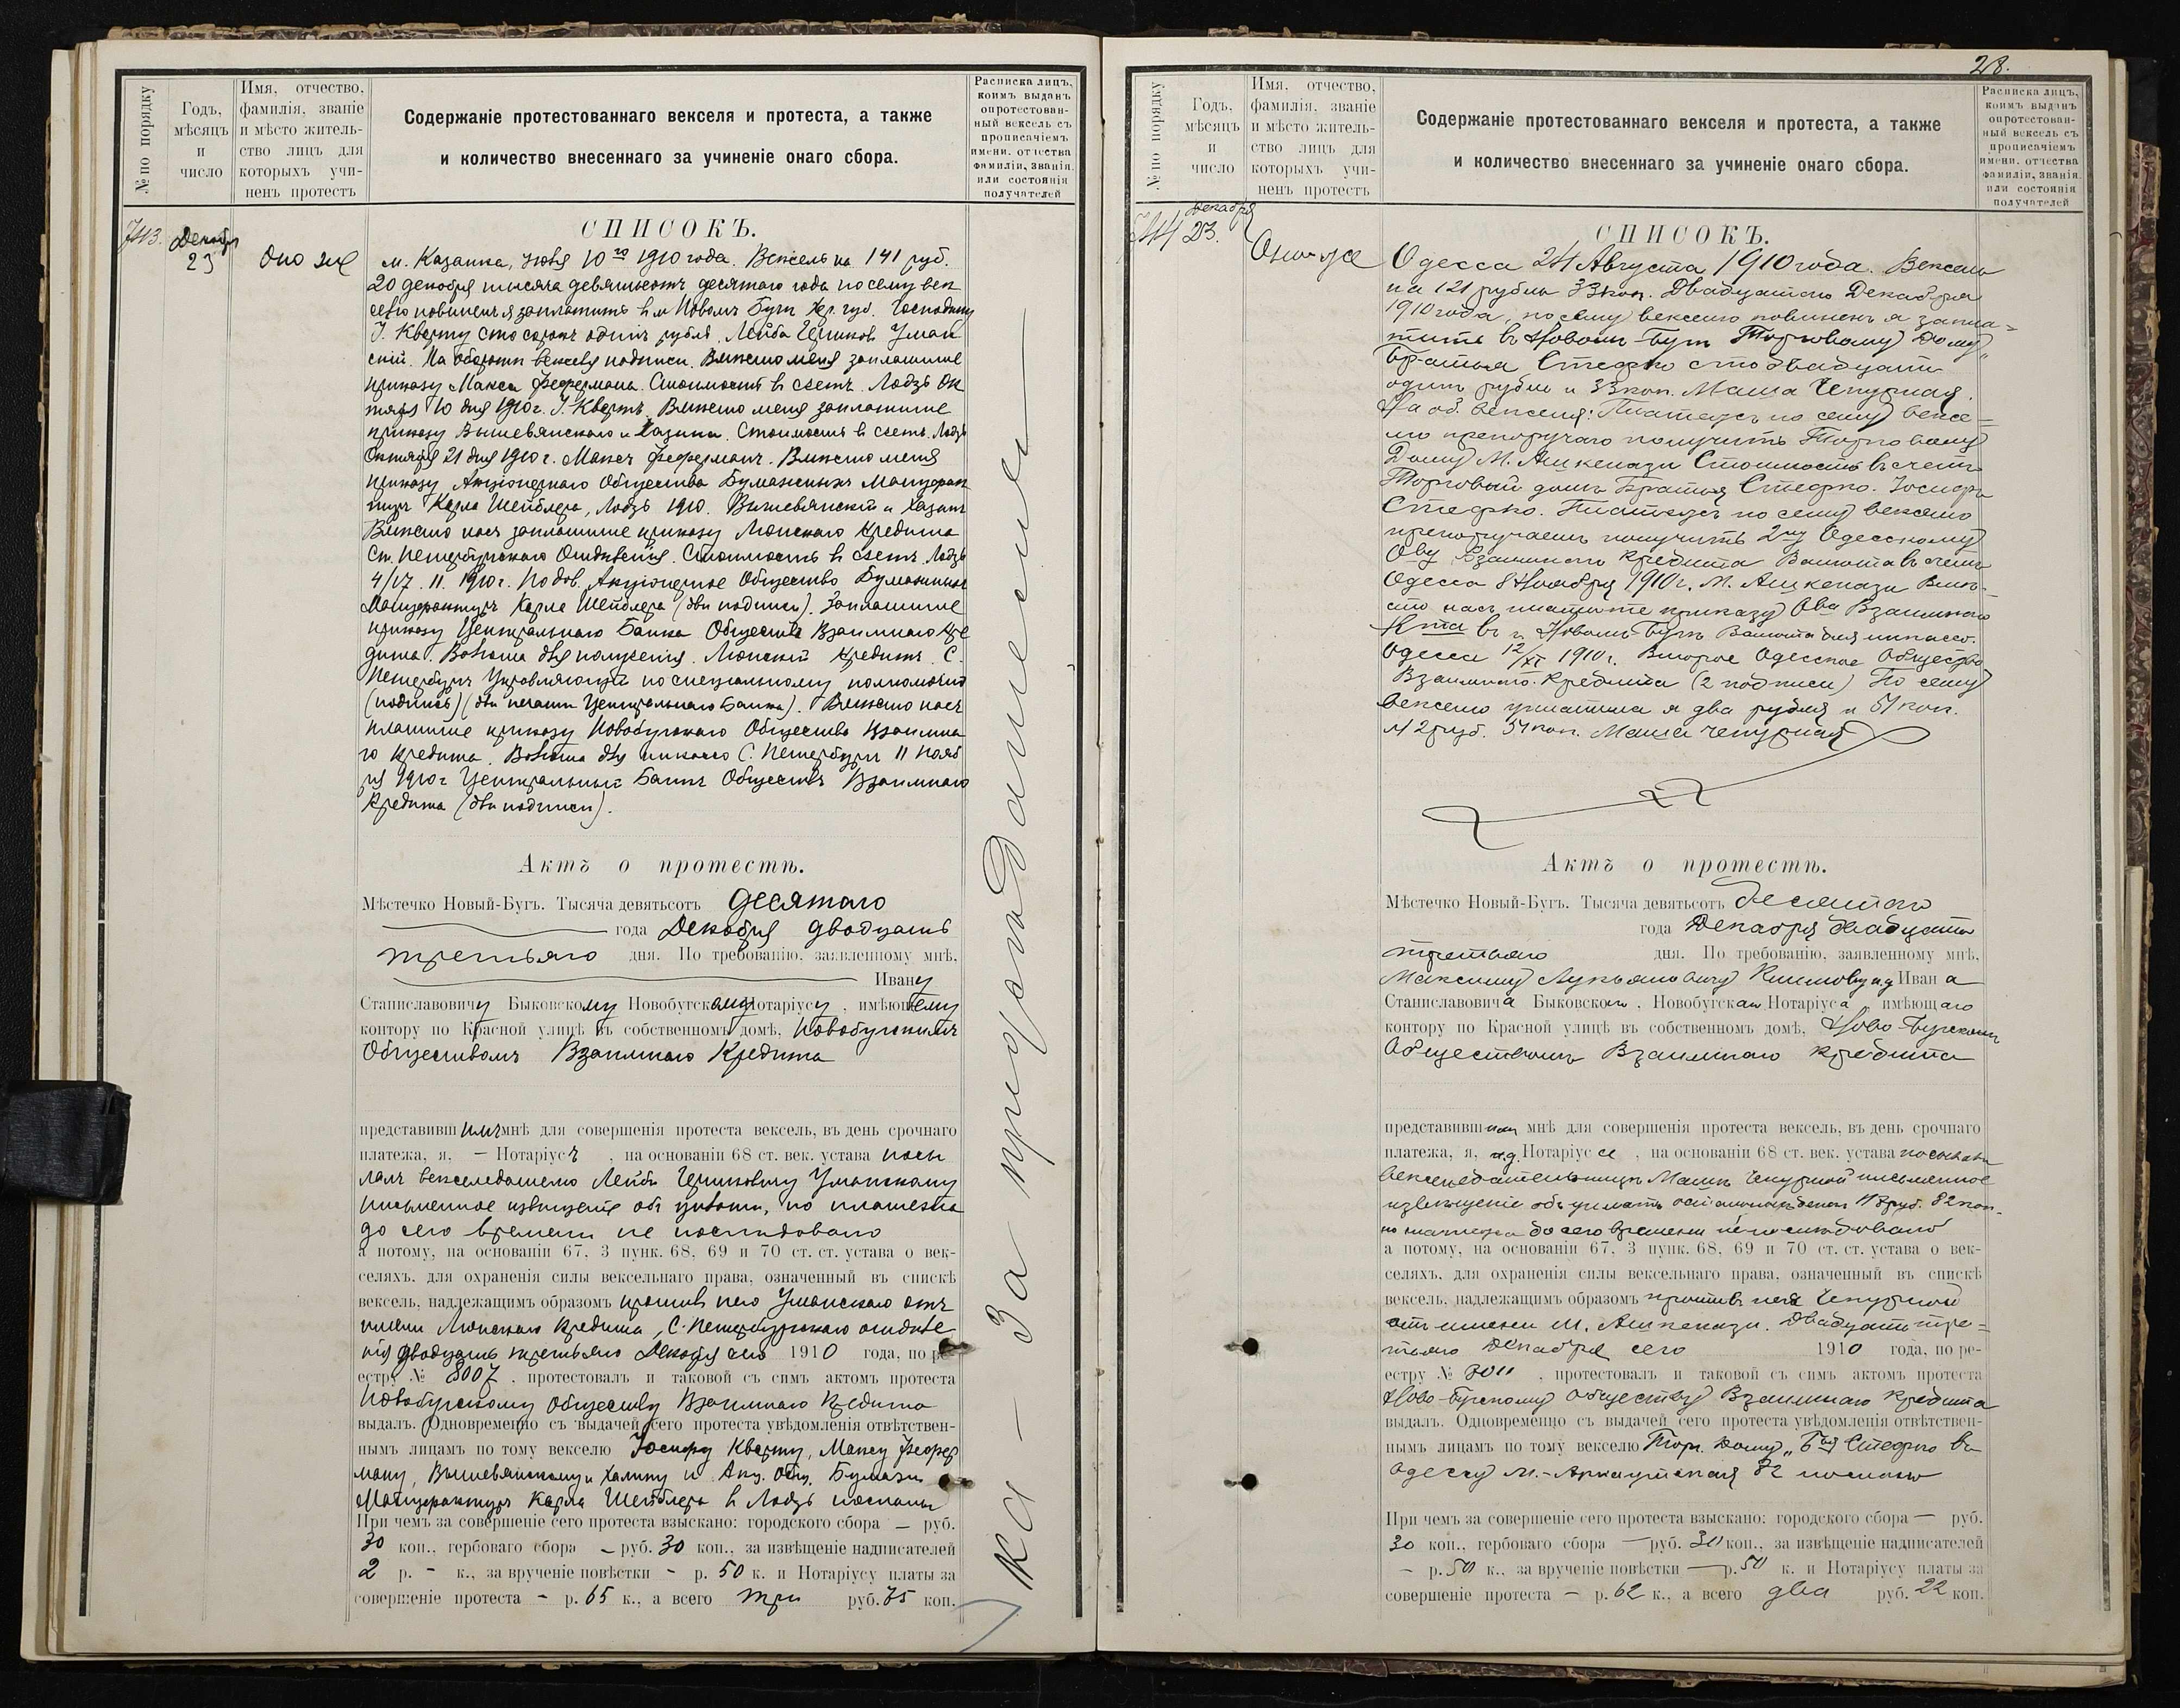 № по порядку
Годъ,
мѣсяцъ
и
число
Имя, отчество,
фамилія, званіе
и мѣсто житель-
ство лицъ для
которыхъ учи-
ненъ протестъ
Содержаніе протестованнаго векселя и протеста, а также
и количество внесеннаго за учиненіе онаго сбора.
Расписка лицъ,
коимъ выданъ
опротестован-
ный вексель съ
прописаніемъ
имени, отчества
фамиліи, званія
или состоянія
получателей
743.
Декабря
23
Оно же
СПИСОКЪ.
м. Казанка, Июня 10го 1910 года. Вексель на 141 руб.
20 декабря тысяча девятьсотъ десятаго года по сему век
селю повиненъ я заплатить в м Новомъ Бугѣ Хер. губ. Господину
І. Кверту сто сорокъ одинъ рубля. Лейба Уман
скій. На оборотѣ векселя надписи. Вмѣсто меня заплатите
приказу Макса Фефермана. Стоимость в счетъ. Лодзь Ок
тября 10 дня 1910 г. І. Квертъ. Вмѣсто меня заплатите
приказу Вышевянскаго и Хазана. Стоимость в счетъ. Лодзь
Октября 21 дня 1910 г. Максъ Феферманъ. Вмѣсто меня
приказу Акціонернаго Общества Бумажныхъ Мануфак
туръ Карла Шейблера, Лодзь 1910. Вышевянскій и Хазанъ
Вмѣсто насъ заплатите приказу Ліонскаго Кредита
Ст. Петербургскаго Отдѣленія. Стоимость в счетъ Лодзь
4/17. 11. 1910 г. По дов. Акціонерное Общество Бумажныхъ
Мануфактуръ Карла Шейблера (двѣ подписи). Заплатите
приказу Центральнаго Банка Общества Взаимнаго Кре
дита. Валюта для полученія. Ліонскій Кредитъ. С.
Петербургъ Управляющій по спеціальному полномочію
(подпись) (двѣ печати Центральнаго Банка). Вмѣсто насъ
платите приказу Новобугскаго Общества Взаимна
го Кредита. Валюта для инкассо С. Петербургъ 11 Нояб
ря 1910 г Центральный Банкъ Обществъ Взаимнаго
Кредита (двѣ подписи).
Актъ о протестѣ.
Мѣстечко Новый-Бугъ. Тысяча девятьсотъ десятаго
года Декабря двадцать
третьяго дня. По требованію, заявленному мнѣ,
Ивану
Станиславовичу Быковскому Новобугскому Нотаріусу, имѣющему
контору по Красной улицѣ въ собственномъ домѣ, Новобугскимъ
Обществомъ Взаимнаго Кредита
представившимъ мнѣ для совершенія протеста вексель, въ день срочнаго
платежа, я, – Нотаріусъ, на основаніи 68 ст. век. устава посы
лалъ векселедателю Лейбѣ Уманскому
письменное извѣщеніе объ уплатѣ, но платежа
до сего времени не послѣдовало
а потому, на основаніи 67, 3 пунк. 68, 69 и 70 ст. ст. устава о век-
селяхъ, для охраненія силы вексельнаго права, означенный въ спискѣ
вексель, надлежащимъ образомъ противъ него Уманскаго отъ
имени Ліонскаго Кредита, С. Петербургскаго отдѣле
нія двадцать третьяго Декабря сего 1910 года, по ре-
естру № 8007, протестовалъ и таковой съ симъ актомъ протеста
Новобугскому Обществу Взаимнаго Кредита
выдалъ. Одновременно съ выдачей сего протеста увѣдомленія отвѣтствен-
нымъ лицамъ по тому векселю Іосифу Кверту, Максу Фефер
ману, Вышевянскому и Хазану и Акц. Общ. Бумажн.
Мануфактуръ Карла Шейблера в Лодзь посланы
При чемъ за совершеніе сего протеста взыскано: городского сбора – руб.
30 коп., гербоваго сбора – руб. 30 коп., за извѣщеніе надписателей
2 р. – к., за врученіе повѣстки – р. 50 к. и Нотаріусу платы за
совершеніе протеста – р. 65 к., а всего три руб. 75 коп.
28.
№ по порядку
Годъ,
мѣсяцъ
и
число
Имя, отчество,
фамилія, званіе
и мѣсто житель-
ство лицъ для
которыхъ учи-
ненъ протестъ
Содержаніе протестованнаго векселя и протеста, а также
и количество внесеннаго за учиненіе онаго сбора.
Расписка лицъ,
коимъ выданъ
опротестован-
ный вексель съ
прописаніемъ
имени, отчества
фамиліи, званія
или состоянія
получателей
744
Декабря
23.
Оно-же
СПИСОКЪ.
Одесса 24 Августа 1910 года. Вексель
на 121 рубль 33 коп. Двадцатаго Декабря
1910 года, по сему векселю повиненъ я запла=
тить въ Новомъ-Бугѣ Торговому Дому
"Братья Стефко сто двадцать
одинъ рубль и 33 коп. Маша Чепурная.
На об. векселя: Платежъ по сему вексе=
лю препоручаю получить Торговому
Дому М. Ашкенази Стоимость въ счетъ
Торговый домъ Братья Стефко. Іосифъ
Стефко. Платежъ по сему векселю
препоручаемъ получить 2му Одесскому
Обву Взаимнаго Кредита Валюта въ счетъ
Одесса 8 Ноября 1910 г. М. Ашкенази Вмѣ-
сто насъ платите приказу Обва Взаимнаго
Кта въ г. Новомъ-Бугѣ Валюта для инкассо.
Одесса 12/XI 1910 г. Второе Одесское Общество
Взаимнаго Кредита (2 подписи) По сему
векселю уплатила я два рубля и 51 коп.
Маша Чепурная
Актъ о протестѣ.
Мѣстечко Новый-Бугъ. Тысяча девятьсотъ десятаго
года Декабря двадцать
третьяго дня. По требованію, заявленному мнѣ,
Максиму Лукьяновичу и.д. Ивана
Станиславовича Быковскаго, Новобугскаго Нотаріуса, имѣющаго
контору по Красной улицѣ въ собственномъ домѣ, Ново-Бугскимъ
Обществомъ Взаимнаго Кредита
представившимъ мнѣ для совершенія протеста вексель, въ день срочнаго
платежа, я, и.д. Нотаріуса, на основаніи 68 ст. век. устава посылалъ
векселедательницѣ Машѣ Чепурной письменное
извѣщеніе объ уплатѣ остальныхъ денегъ 118 руб. 82 коп.
но платежа до сего времени не послѣдовало
а потому, на основаніи 67, 3 пунк. 68, 69 и 70 ст. ст. устава о век-
селяхъ, для охраненія силы вексельнаго права, означенный въ спискѣ
вексель, надлежащимъ образомъ противъ нея Чепурной
отъ имени М. Ашкенази. Двадцать тре=
тьяго Декабря сего 1910 года, по ре-
естру №, протестовалъ и таковой съ симъ актомъ протеста
Ново-Бугскому Обществу Взаимнаго Кредита
выдалъ. Одновременно съ выдачей сего протеста увѣдомленія отвѣтствен-
нымъ лицамъ по тому векселю Торг. Дому „Бья Стефко въ
Одессу М.-Арнаутская 82 послано
При чемъ за совершеніе сего протеста взыскано: городского сбора – руб.
30 коп., гербоваго сбора – руб. 30 коп., за извѣщеніе надписателей
– р. 50 к., за врученіе повѣстки – р. 50 к. и Нотаріусу платы за
совершеніе протеста – р. 62 к., а всего два руб. 22 коп.